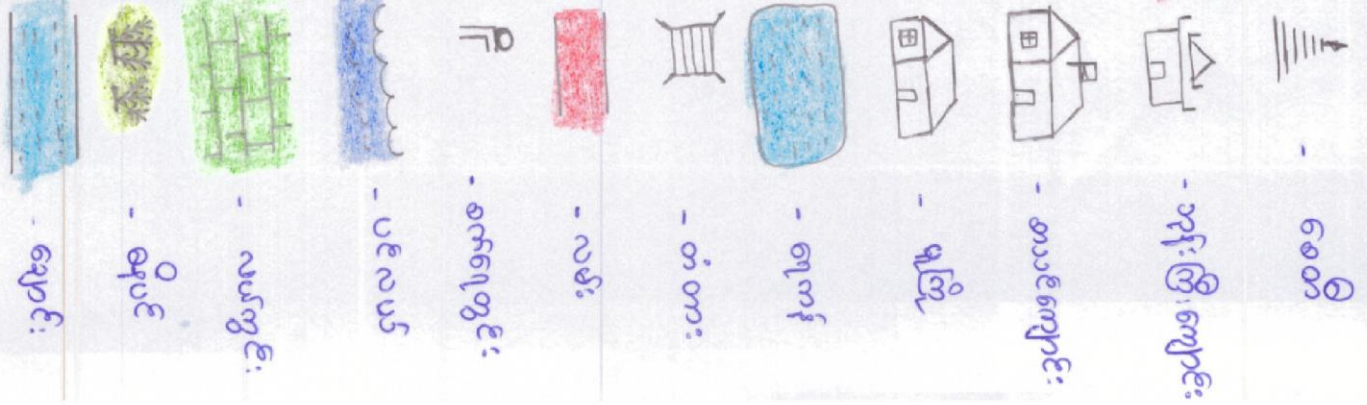 - စေတီ
- ဘုန်းကြီးကျောင်း
- စာသင်ကျောင်း
- ရေကန်
- တံတား
- လမ်း
- စက်ရေတွင်း
- ပင်လယ်
- လယ်ကွင်း
- ချောင်း